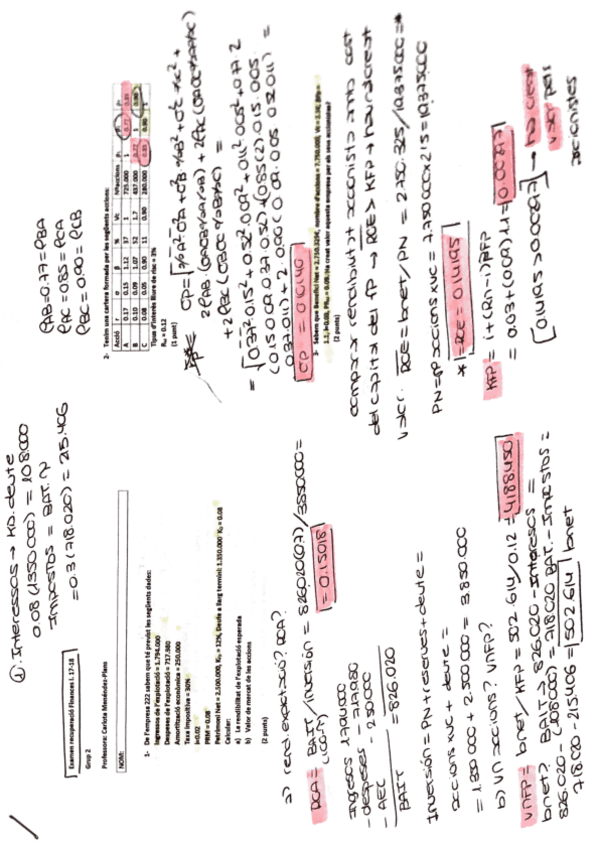 ① Interessos → KD. deute
0.08 (1350000) = 108000
Impostos = BAT. %
= 0.3 (718.020) = 215.406
Examen recuperació Finances I. 17-18
Grup 2
Professora: Carlota Menéndez-Plans
NOM:
1- De l'empresa 222 sabem que té previst les següents dades:
Ingressos de l'explotació = 1.794.000
Despeses de l'explotació = 717.980
Amortització econòmica = 250.000
Taxa impositiva = 30%
i=0.02
PRM = 0.08
Patrimoni Net = 2.500.000, Kfp = 12%, Deute a llarg termini: 1.350.000 Kd = 0.08
Calcular:
a) La rendibilitat de l'explotació esperada
b) Valor de mercat de les accions
(2 punts)
a) rend. explotació? ROA?
ROA = BAIT / inversión = 826020(0.7)/3850000 =
= 0.15018
Ingresos 1794000
- despeses - 717980
- AEC - 250000
BAIT = 826.020
Inversión = PN + reserves + deute =
accions x vc + deute =
= 1350000 + 2.500.000 = 3850.000
b) vn accions? VMFP?
VMFP = bnet / KFP = 502.614/0.12 = 4188450
bnet? BAIT → 826.020 - Interesos =
826.020 - (108000) = 718020 BAT. - Impostos =
718020 - 215406 = 502614 bnet
ρAB = 0.77 = ρBA
ρAC = 0.85 = ρCA
ρBC = 0.90 = ρCB
2- Tenim una cartera formada per les següents accions:
Acció r σ β % Vc NºAccions
A 0.17 0.15 1.12 37 1 725.000 1 0.77
B 0.10 0.09 1.07 52 1.7 637.000 0.77 1 0.90
C 0.08 0.05 0.90 11 0.90 280.000 0.90 1
Tipus d'interès lliure de risc = 3%
Rm = 0.12
(1 punt)
σP = √%A²·σ²A + σ²B %B² + σ²C %C² +
2ρAB (σAσB%A%B) + 2ρAC (σAσC%A%C)
+ 2ρBC (σBσC%B%C) =
= √0.37²0.15² + 0.52²0.09² + 0.11²0.05² + 0.77·2
(0.15·0.09·0.37·0.52) + 0.85(2)·0.15·0.05·
0.37·0.11) + 2·0.90 (0.09·0.05·0.52·0.11) =
σP = 0.10140
3- Sabem que Benefici Net = 2.750.325€, nombre d'accions = 7.750.000, Vc = 2.5€, βfp =
1.1, i=0.03, PRM = 0.09. Ha creat valor aquesta empresa pels seus accionistes?
(2 punts)
comparar rendibilitat accionista amb cost
del capital del fp → ROE > KFP → haurà creat
valor. ROE = bnet/PN = 2.750.325/19375000 = *
PN = nº accions x vc = 7.750.000 x 2'5 = 19.375000
* = ROE = 0.14195
KFP = i + (Rm - i) βFP
= 0.03 + (0.09) 1.1 =
0.14195 > → ha creat
valor pels
accionistes